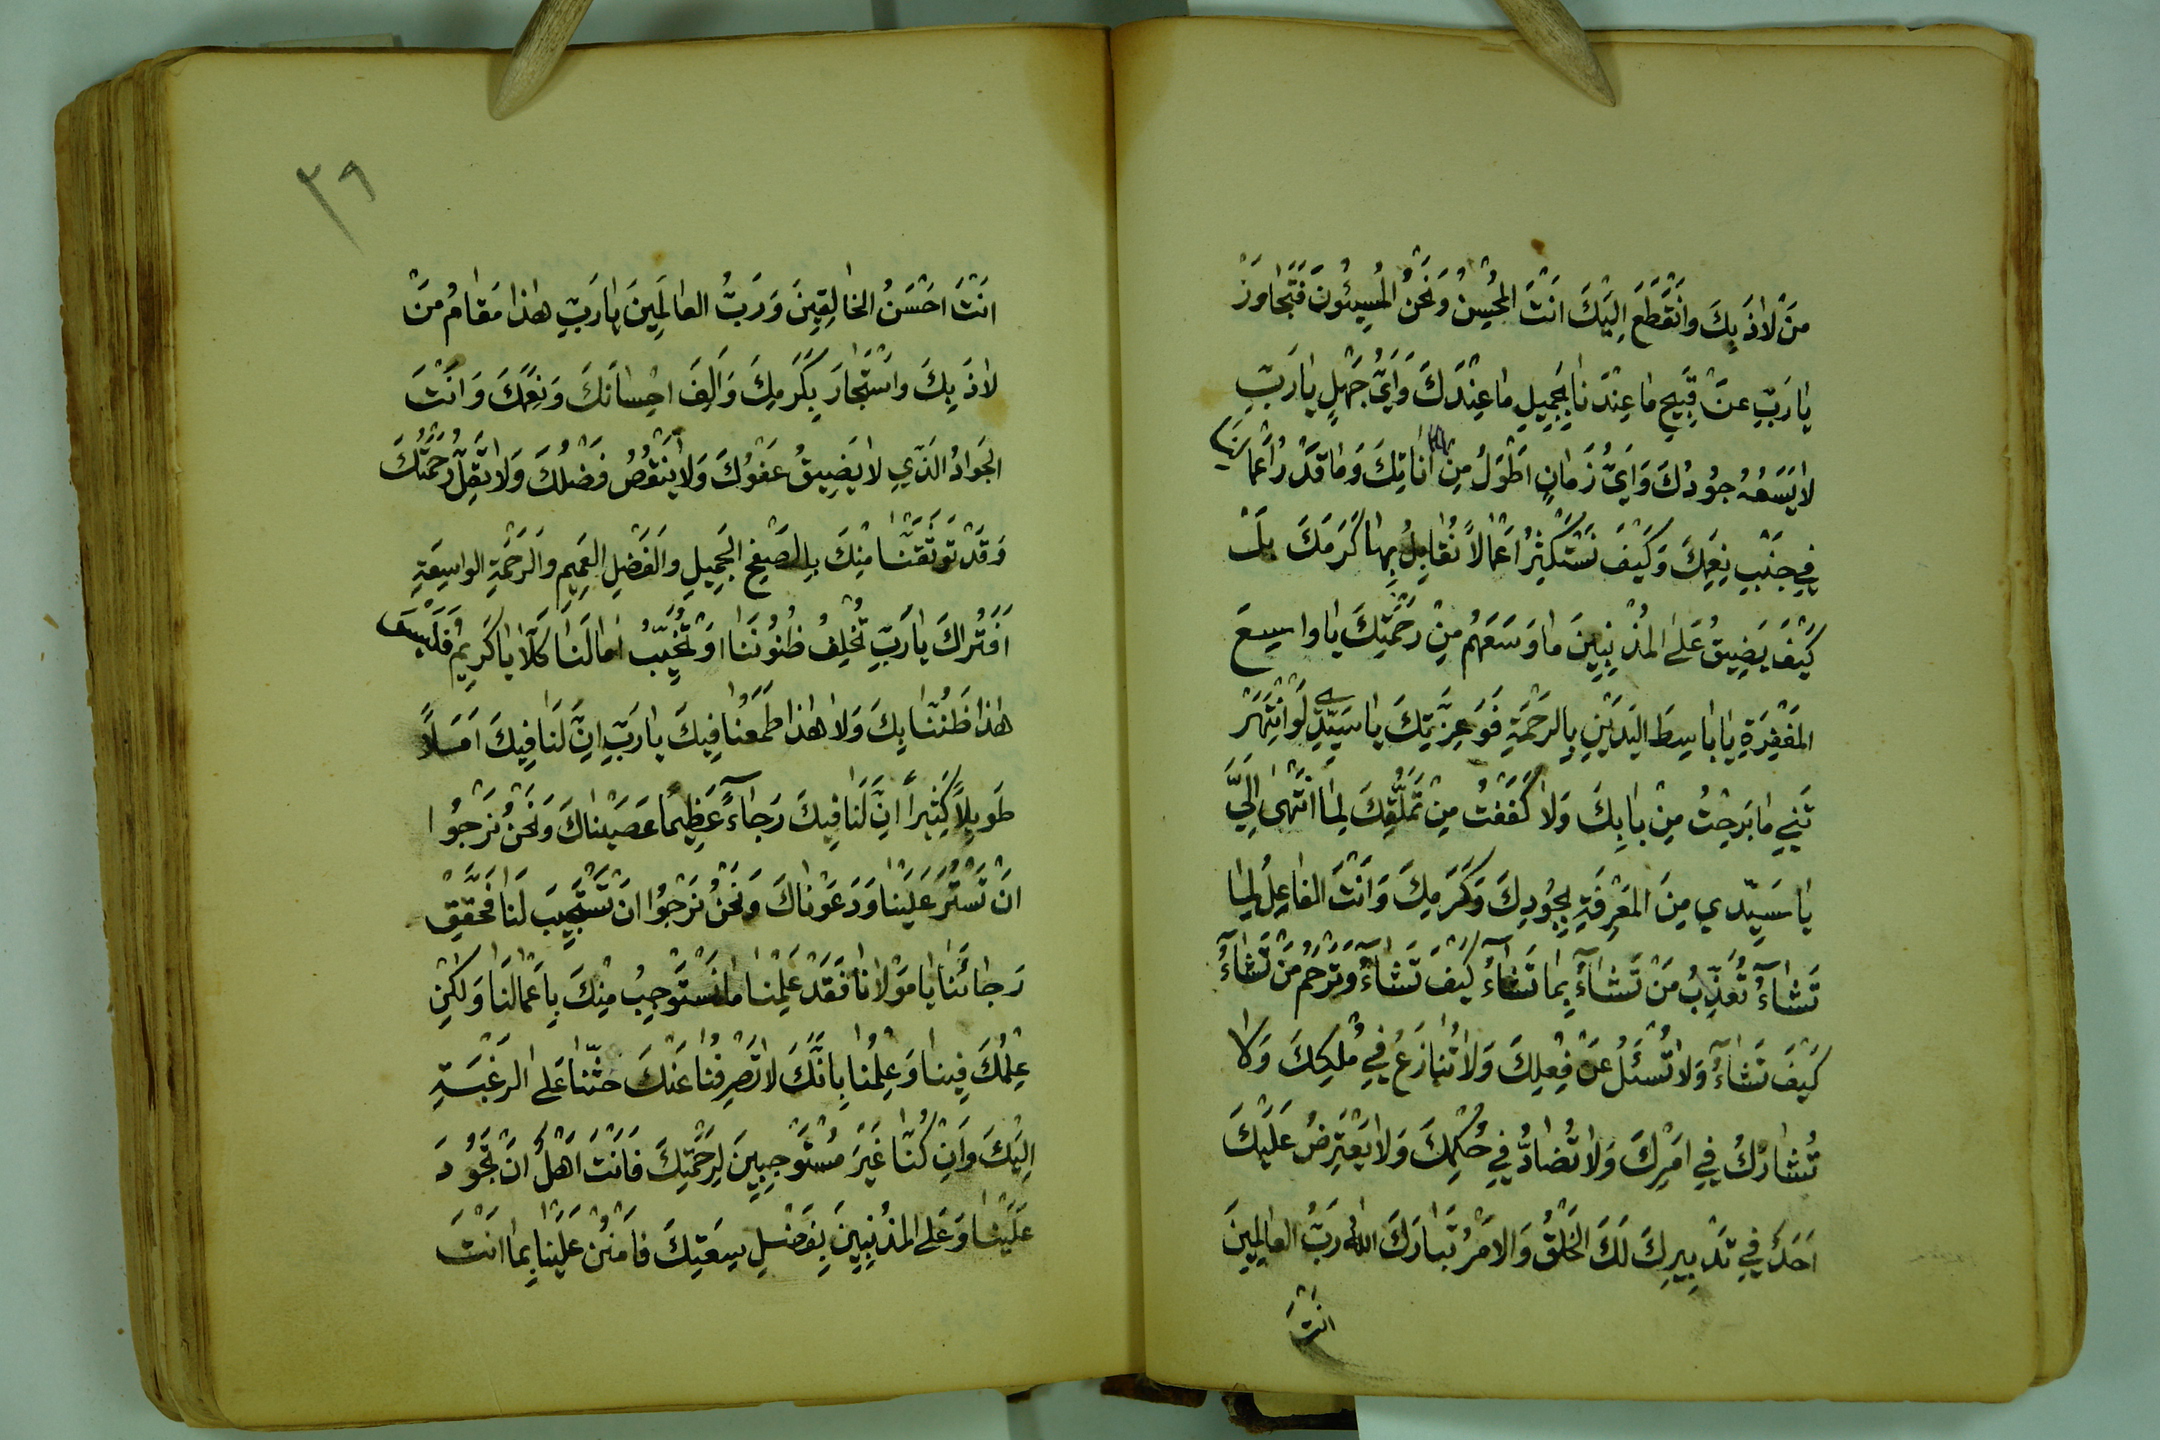 مَنْ لاٰذَ بِكَ وانْقَطَعَ اِلَيْكَ اَنْتَ المُحْسِنُ وَنَحْنُ المُسِيئُونَ فَتَجاوَزْ
يا رَبِّ عَنْ قَبِيحِ ما عِنْدَنا بِجَمِيلِ ما عِنْدَكَ وَاَيُّ جَهْلٍ يا رَبِّ
لا يَسَعُهُ جُودُكَ وَاَيُّ زَمانٍ اَطْوَلُ مِنْ اَناتِكَ وَما قَدْرُ اَعْمالِنا
فِي جَنْبِ نِعَمِكَ وَكَيْفَ نَسْتَكْثِرُ اَعْمالاً نُقابِلُ بِها كَرَمَكَ بَلْ
كَيْفَ يَضِيقُ عَلَى المُذْنِبِينَ ما وَسَعَهُمْ مِنْ رَحْمَتِكَ يا واسِعَ
المَغْفِرَةِ يا باسِطَ اليَدَيْنِ بِالرَحْمَةِ فَوَعِزَّتِكَ يا سَيِّدِي لَوْ انْتَهَرْ
تَنِي ما بَرِحْتُ مِنْ بابِكَ وَلا كَفَفْتُ مِنْ تَمَلُّقِكَ لِمَا انْتَهىٰ اِلَيَّ
يا سَيِّدي مِنَ المَعْرِفَةِ بِجُودِكَ وَكَرَمِكَ وَاَنْتَ الفاعِلُ لِما
تَشاۤءُ تُعَذِّبُ مَنْ تَشاۤءُ بِما تَشاۤءُ كَيْفَ تَشاۤءُ وَتَرْحَمُ مَنْ تَشاۤءُ
كَيْفَ تَشاۤءُ وَلا تُسْئَلُ عَنْ فِعْلِكَ وَلا تُنازَعُ فِي مُلْكِكَ وَلا
تُشارَكُ فِي اَمْرِكَ وَلا تُضادُّ فِي حُكْمِكَ وَلا يَعْتَرِضُ عَلَيْكَ
اَحَدٌ فِي تَدْبِيرِكَ لَكَ الخَلْقُ وَالاَمْرُ تَبارَكَ اللهُ رَبُّ العالَمِينَ
انْتَ
٣٩
اَنْتَ اَحْسَنُ الخالِقِينَ وَرَبُّ العالَمِينَ يا رَبِّ هٰذا مَقامُ مَنْ
لاذَ بِكَ واسْتَجارَ بِكَرَمِكَ وَاَلِفَ اِحْسانَكَ وَنِعَمَكَ وَانْتَ
الجَوادُ الَّذِي لا يَضِيقُ عَفْوُكَ وَلا يَنْقُصُ فَضْلُكَ وَلا تَقِلُّ رَحْمَتُكَ
وَقَدْ تَوَثَّقْنا مِنْكَ بِالصَفْحِ الجَمِيلِ والفَضْلِ العَمِيمِ والرَحْمَةِ الواسِعَةِ
اَفَتُراكَ يا رَبِّ تُخْلِفُ ظُنُونَنا اَوْ تُخَيِّبُ اٰمالَنا كَلّا يا كَرِيمُ فَلَيْسَ
هٰذا ظَنُّنا بِكَ وَلا هٰذا طَمَعُنا فِيكَ يا رَبِّ اِنَّ لَنا فِيكَ اَمَلاً
طَوِيلاً كَثِيراً اِنَّ لَنا فِيكَ رَجاۤءً عَظِيمًا عَصَيْناكَ وَنَحْنُ نَرْجُوا
اَنْ تَسْتُرَ عَلَيْنا وَدَعَوْناكَ وَنَحْنُ نَرْجُوا اَنْ تَسْتَجِيبَ لَنا فَحَقِّقْ
رَجائَنا يا مَوْلانا فَقَدْ عَلِمْنا ما نَسْتَوْجِبُ مِنْكَ بِاَعْمالِنا وَلٰكِنْ
عِلْمُكَ فِينا وَعِلْمُنا بِاَنَّكَ لا تَصْرِفُنا عَنْكَ حَثَّنا عَلَى الرَغْبَةِ
اِلَيْكَ وَاِنْ كُنّا غَيْرَ مُسْتَوْجِبِينَ لِرَحْمَتِكَ فَاَنْتَ اَهْلٌ اَنْ تَجُودَ
عَلَيْنا وَعَلَى المُذْنِبِينَ بِفَضْلِ سِعَتِكَ فَامْنُنْ عَلَيْنا بِما اَنْتَ